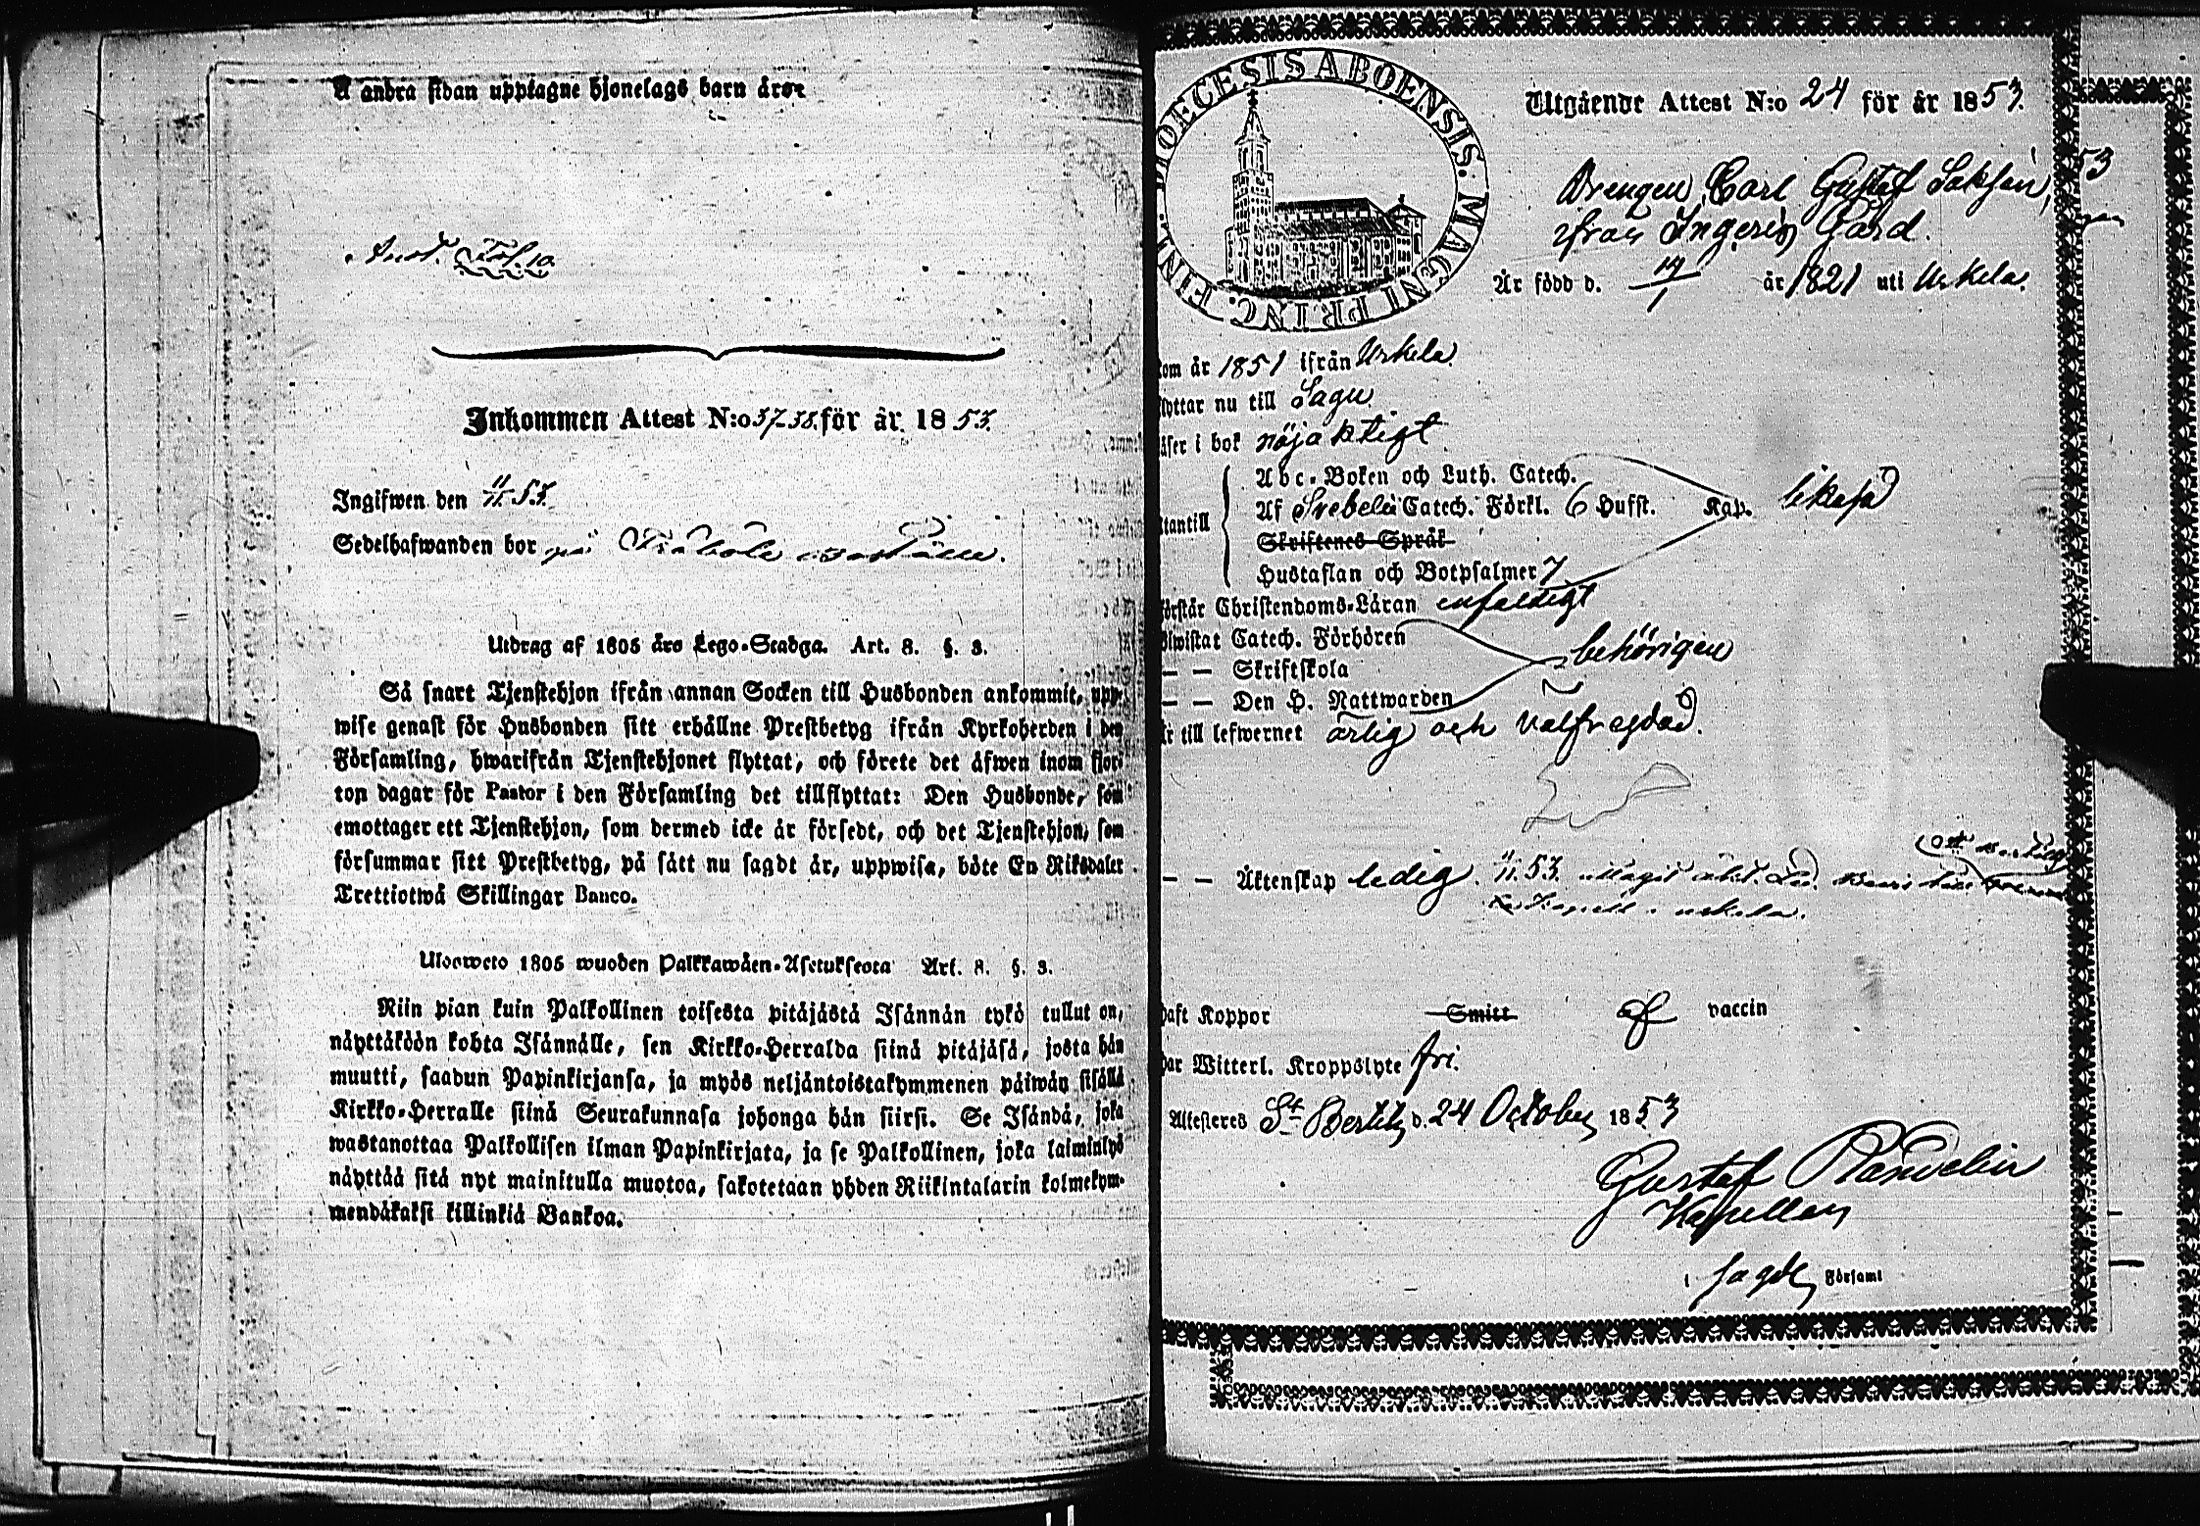 Å andra sidan upptagne hjonelags barn äro:
Fol. 10.
Inkommen Attest N:o 37-38. för år 1853.
Ingifwen den 11/11 53.
Sedelhafwanden bor på
Utdrag af 1805 års Lego-Stadga. Art. 8. §. 3.
Så snart Tjenstehjon ifrån annan Socken till Husbonden ankommit, upp-
wise genast för Husbonden sitt erhållne Prestbetyg ifrån Kyrkoherden i den
Församling, hwarifrån Tjenstehjonet flyttat, och förete det äfwen inom fjor-
ton dagar för Pastor i den Församling det tillflyttat: Den Husbonde, som
emottager ett Tjenstehjon, som dermed icke är försedt, och det Tjenstehjon, som
försummar sitt Prestbetyg, på sätt nu sagdt är, uppwisa, böte En Riksdaler
Trettiotwå Skillingar Banco.
Ulosweto 1805 wuoden Palkkawäen-Asetuksesta Art. 8. §. 3.
Niin pian kuin Palkollinen toisesta pitäjästä Isännän tykö tullut on,
näyttäköön kohta Isännälle, sen Kirkko-Herralda siinä pitäjäsä, josta hän
muutti, saadun Papinkirjansa, ja myös neljäntoistakymmenen päiwän sisällä
Kirkko-Herralle siinä Seurakunnasa johonga hän siirsi. Se Isändä, joka
wastanottaa Palkollisen ilman Papinkirjata, ja se Palkollinen, joka laiminlyö
näyttää sitä nyt mainitulla muotoa, sakotetaan yhden Riikintalarin kolmekym-
mendäkaksi killinkiä Bankoa.
DIOECESIS ABOENSIS. MAGNI PRINC. FINL.
Utgående Attest N:o 24 för år 1853.
Drengen Carl Gustaf
ifrån Ingeris Gård.
53
Är född d. 14/1 år 1821 uti Uskela.
Kom år 1851 ifrån Uskela
flyttar nu till Sagu
läser i bok nöjaktigt
utantill
Abc-Boken och Luth. Catech.
Af Svebelii Catech. Förkl. 6 Hufst. Kap. likaså
Skriftenes Språk
Hustaflan och Botpsalmer 7
förstår Christendoms-Läran enfaldigt
Biwistat Catech. Förhören
— — Skriftskola behörigen
— — Den H. Nattwarden
Är till lefwernet ärlig och välfrejdad.
— — Äktenskap ledig. 11/11 53
Haft Koppor Smitt af vaccin
Har Witterl. Kroppslyte fri.
Attesteres St Bertils d. 24 October 1853
Gustaf
Kapellan
i sagde Församl